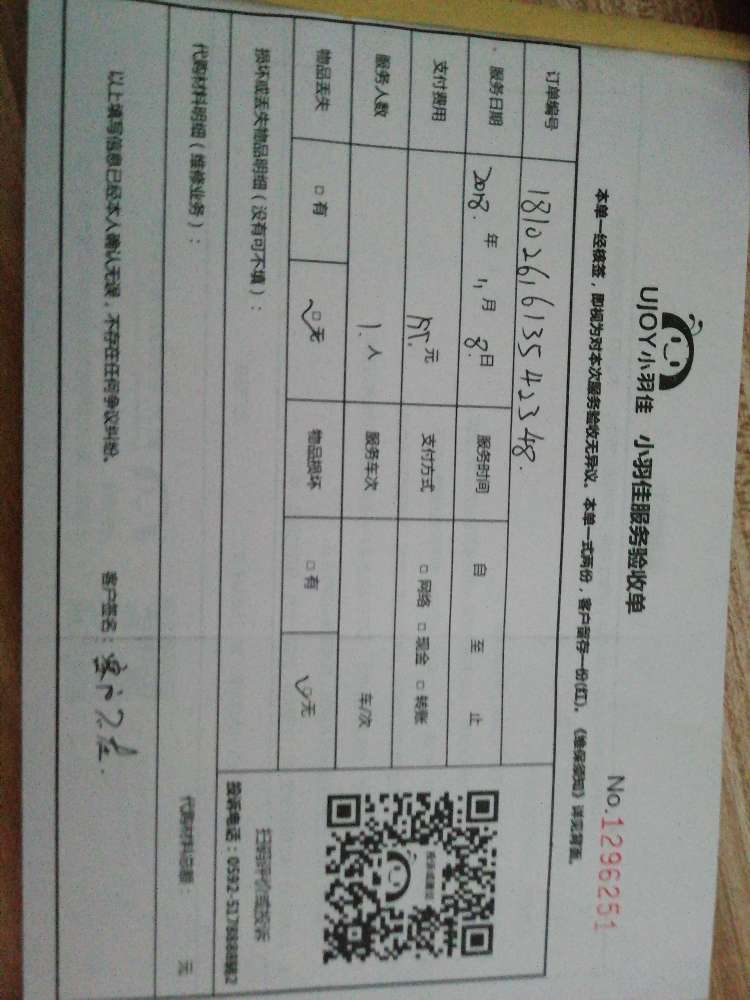 UJOY小羽佳 小羽佳服务验收单
No.1296251
本单一经核签,即视为对本次服务验收无异议。本单一式两份,客户留存一份(红)。《维保须知》详见背面。
订单编号 1810261613542348
服务日期 2018年11月8日 服务时间 自 至 止
支付费用 元 支付方式 □网络 □现金 □转账
服务人数 1人 服务车次 车/次
物品丢失 □有 □无 物品损坏 □有 □无
损坏或丢失物品明细(没有可不填):
扫码评价或投诉
投诉电话:0592-5178888转2
代购材料明细(维修业务): 代购材料总额: 元
以上填写信息已经本人确认无误,不存在任何争议纠纷。 客户签名: